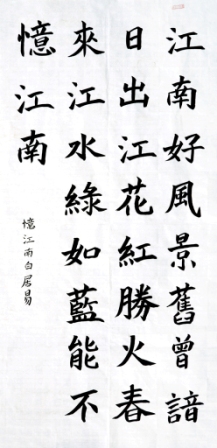 江南好風景舊曾諳
日出江花紅勝火春
來江水綠如藍能不
憶江南
憶江南白居易